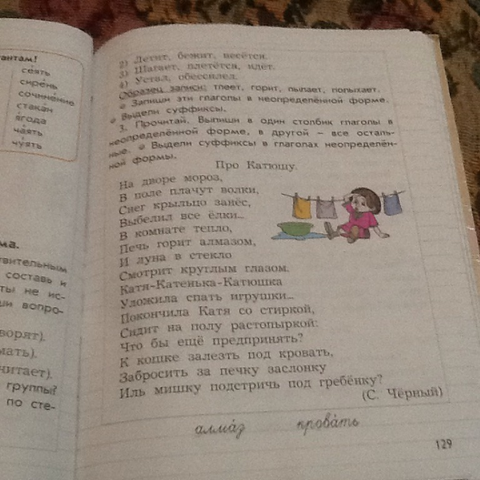 антам!
сеять
сирень
сочинение
стакан
ягода
чаять
чуять
ма.
ствительным
составь и
ты не ис-
ши вопро-
ворят).
мать).
читает).
группы?
по сте-
2) Летит, бежит, несётся.
3) Шагает, плетётся, идёт.
4) Устал, обессилел.
Образец записи: тлеет, горит, пылает, полыхает.
Запиши эти глаголы в неопределённой форме.
Выдели суффиксы.
3. Прочитай. Выпиши в один столбик глаголы в
неопределённой форме, в другой — все осталь-
ные. Выдели суффиксы в глаголах неопределён-
ной формы.
Про Катюшу.
На дворе мороз,
В поле плачут волки,
Снег крыльцо занёс,
Выбелил все ёлки...
В комнате тепло,
Печь горит алмазом,
И луна в стекло
Смотрит круглым глазом.
Катя-Катенька-Катюшка
Уложила спать игрушки...
Покончила Катя со стиркой,
Сидит на полу растопыркой:
Что бы ещё предпринять?
К кошке залезть под кровать,
Забросить за печку заслонку
Иль мишку подстричь под гребёнку?
(С. Чёрный)
алма́з крова́ть
129